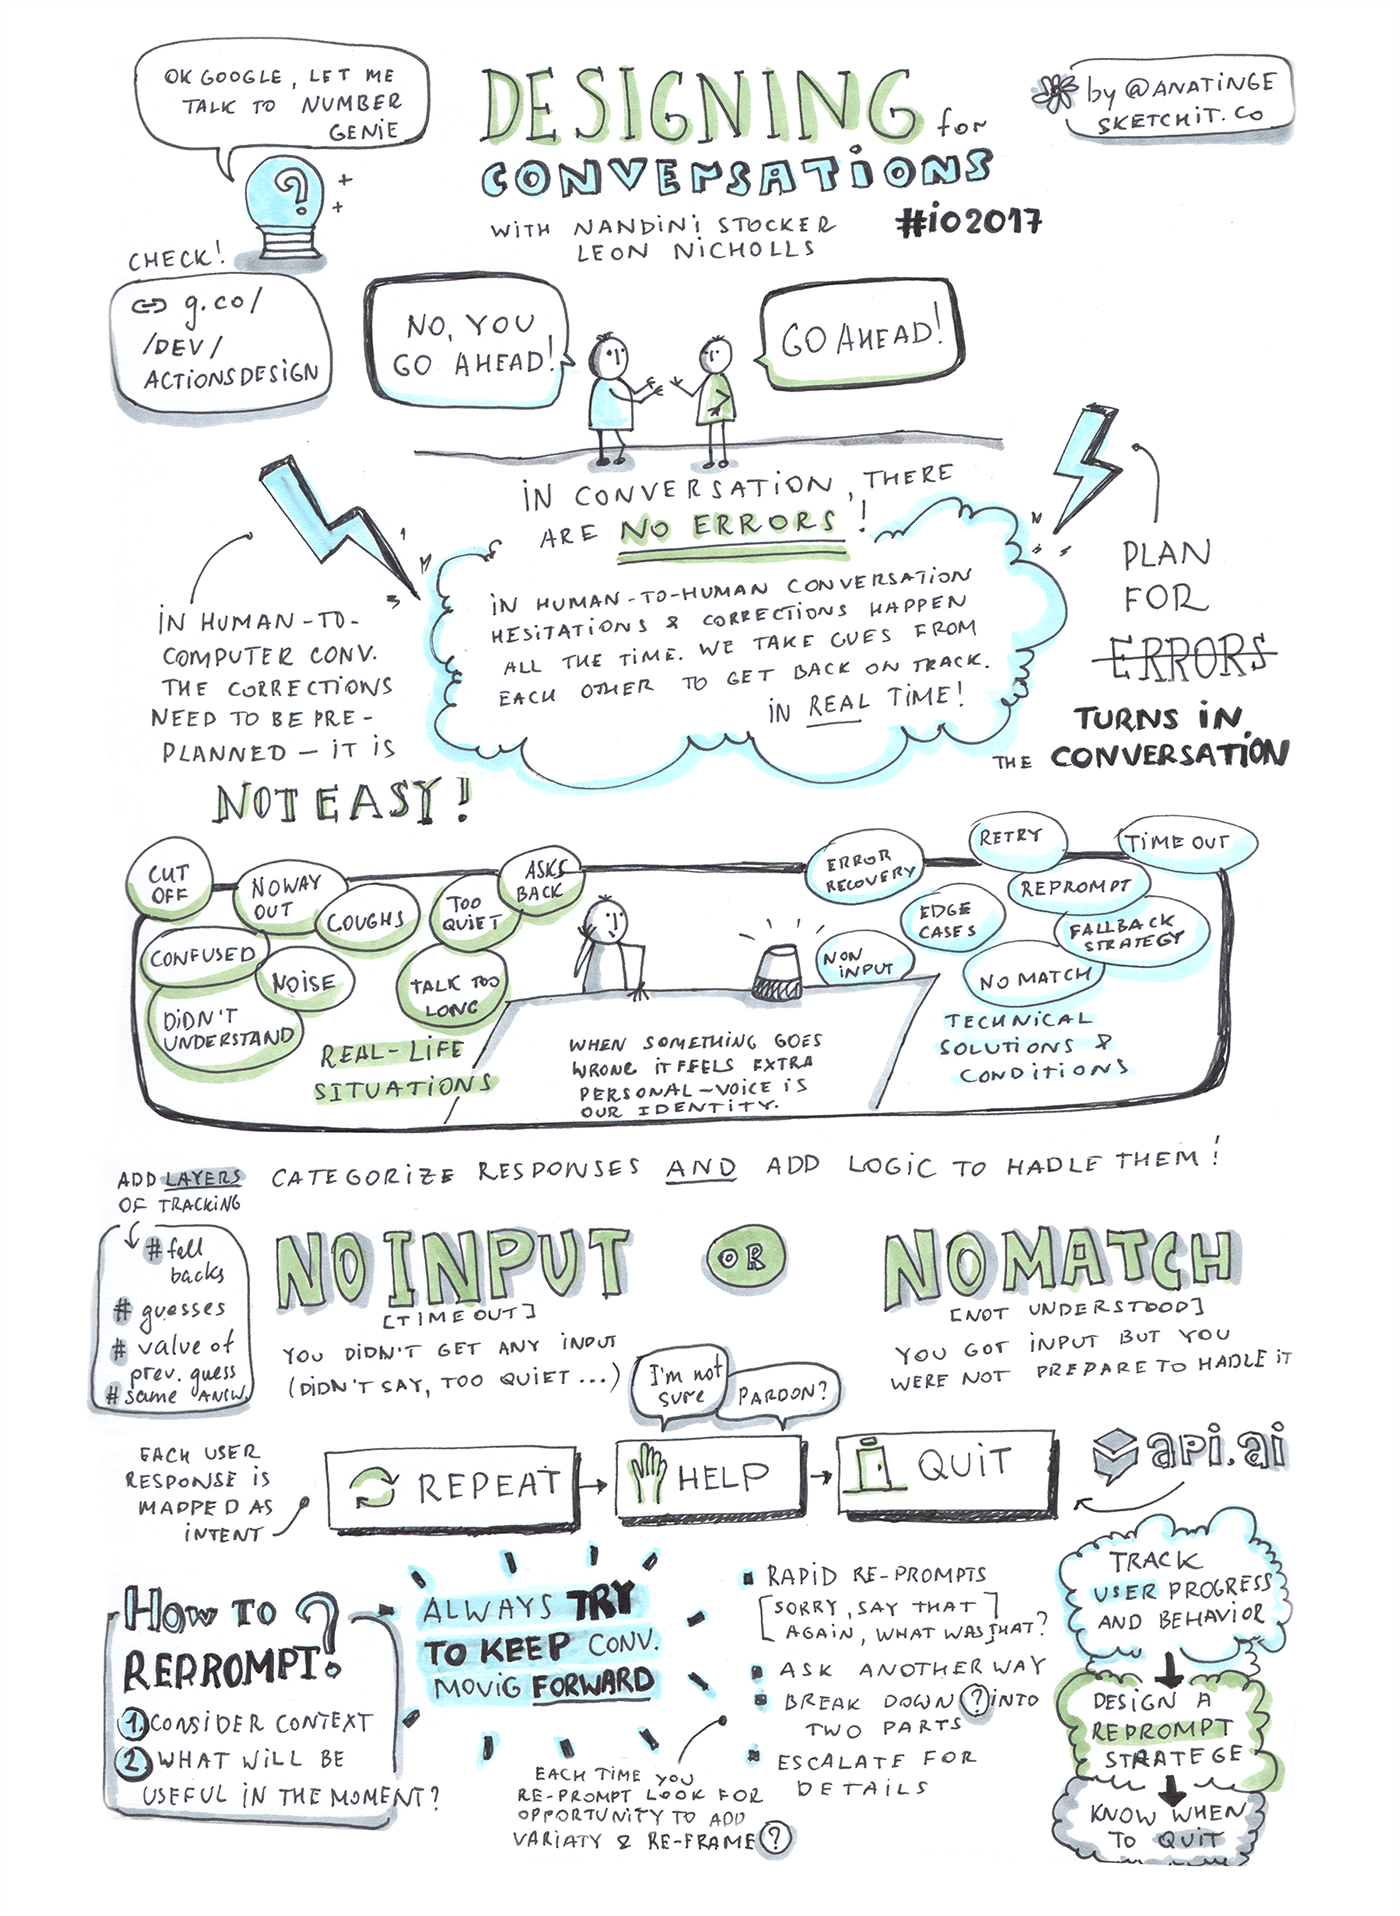 OK GOOGLE, LET ME
TALK TO NUMBER
GENIE
DESIGNING for
CONVERSATIONS
WITH NANDINI STOCKER
LEON NICHOLLS
#io2017
by @ANATINGE
SKETCHIT.CO
?
CHECK!
g.co/
/DEV/
ACTIONSDESIGN
NO, YOU
GO AHEAD!
GO AHEAD!
IN CONVERSATION, THERE
ARE NO ERRORS!
IN HUMAN-TO-HUMAN CONVERSATION
HESITATIONS & CORRECTIONS HAPPEN
ALL THE TIME. WE TAKE CUES FROM
EACH OTHER TO GET BACK ON TRACK.
IN REAL TIME!
IN HUMAN-TO-
COMPUTER CONV.
THE CORRECTIONS
NEED TO BE PRE-
PLANNED – IT IS
NOT EASY!
PLAN
FOR
ERRORS
TURNS IN
THE CONVERSATION
CUT
OFF
NOWAY
OUT
COUGHS
TOO
QUIET
ASKS
BACK
CONFUSED
NOISE
TALK TOO
LONG
DIDN'T
UNDERSTAND
REAL-LIFE
SITUATIONS
WHEN SOMETHING GOES
WRONG IT FEELS EXTRA
PERSONAL – VOICE IS
OUR IDENTITY.
ERROR
RECOVERY
RETRY
TIME OUT
REPROMPT
EDGE
CASES
FALLBACK
STRATEGY
NON
INPUT
NO MATCH
TECHNICAL
SOLUTIONS &
CONDITIONS
ADD LAYERS
OF TRACKING
CATEGORIZE RESPONSES AND ADD LOGIC TO HADLE THEM!
# fall
backs
# guesses
# value of
prev. guess
# same ANSW.
NO INPUT
[TIME OUT]
YOU DIDN'T GET ANY INPUT
(DIDN'T SAY, TOO QUIET...)
OR
NO MATCH
[NOT UNDERSTOOD]
YOU GOT INPUT BUT YOU
WERE NOT PREPARE TO HADLE IT
I'm not
sure
PARDON?
EACH USER
RESPONSE IS
MAPPED AS
INTENT
REPEAT
HELP
QUIT
api.ai
HOW TO
REPROMPT?
1. CONSIDER CONTEXT
2. WHAT WILL BE
USEFUL IN THE MOMENT?
ALWAYS TRY
TO KEEP CONV.
MOVIG FORWARD
EACH TIME YOU
RE-PROMPT LOOK FOR
OPPORTUNITY TO ADD
VARIATY & RE-FRAME ?
RAPID RE-PROMPTS
[SORRY, SAY THAT
AGAIN, WHAT WAS THAT?]
ASK ANOTHER WAY
BREAK DOWN ? INTO
TWO PARTS
ESCALATE FOR
DETAILS
TRACK
USER PROGRESS
AND BEHAVIOR
DESIGN A
REPROMPT
STRATEGE
KNOW WHEN
TO QUIT